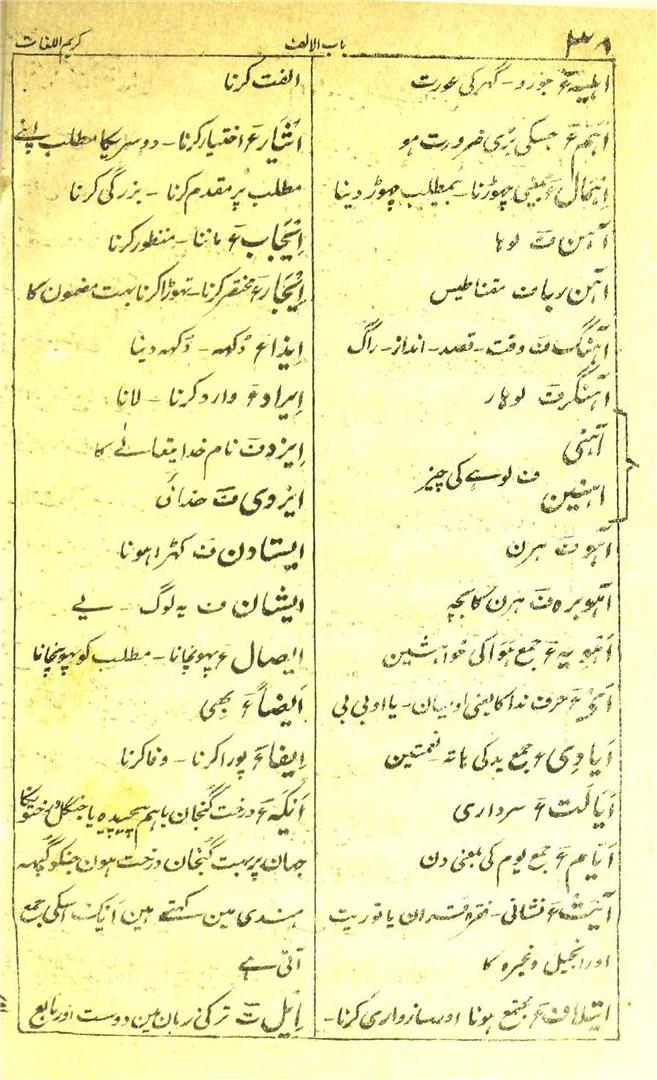 ۳۸
باب الالف
کریم اللغات
اہلیہ ع جورو۔ گہر کی عورت
اَہَم ع جسکی بڑی ضرورت ہو
اِہمال ع یعنی چہوڑنا۔ بیمطلب چہوڑ دینا
آہن ف لوہا
آہن ربا ف مقناطیس
آہنگ ف وقت۔ قصد۔ انداز۔ راگ
آہنگر ف لوہار
آہنی
آہنین ف لوہے کی چیز
آہو ف ہرن
آہوبرہ ف ہرن کا بچہ
اَہویہ ع جمع ہوا کی خواہشین
اَیُّ ع حرف ندا کا یعنی او میان۔ یا او بی بی
اَیادی ع جمع ید کی ہاتہ نعمتین
اَیالت ع سرداری
اَیّام ع جمع یوم کی بمعنی دن
آیت ع نشانی۔ فقرہ قران یا توریت
اور انجیل وغیرہ کا
ایتلاف ع مجتمع ہونا اور سازواری کرنا۔
الفت کرنا
ایثار ع اختیار کرنا۔ دوسریکا مطلب اپنے
مطلب پر مقدم کرنا۔ بزرگی کرنا
اِیجاب ع ماننا۔ منظور کرنا
اِیجاز ع مختصر کرنا۔ تہوڑا کرنا بہت مضمون کا
ایذا ع دُکہہ۔ دُکہہ دینا
اِیراد ع وارد کرنا۔ لانا
اِیزد ف نام خدایتعالےٰ کا
ایزدی ف خدائی
ایستادن ف کہڑا ہونا
ایشان ف یہ لوگ۔ یے
ایصال ع پہونچانا۔ مطلب کو پہونچانا
اَیضاً ع بھی
اِیفاء ع پورا کرنا۔ وفا کرنا
اَیکہ ع درخت گنجان باہم پیچیدہ یا جنگل درختونکا
جہان پر بہت گنجان درخت ہون جنکو گہہ
ہندی مین کہتے ہین اَیک اسکی جمع
آتی ہے
اِیل ت ترکی زبان مین دوست اور تابع